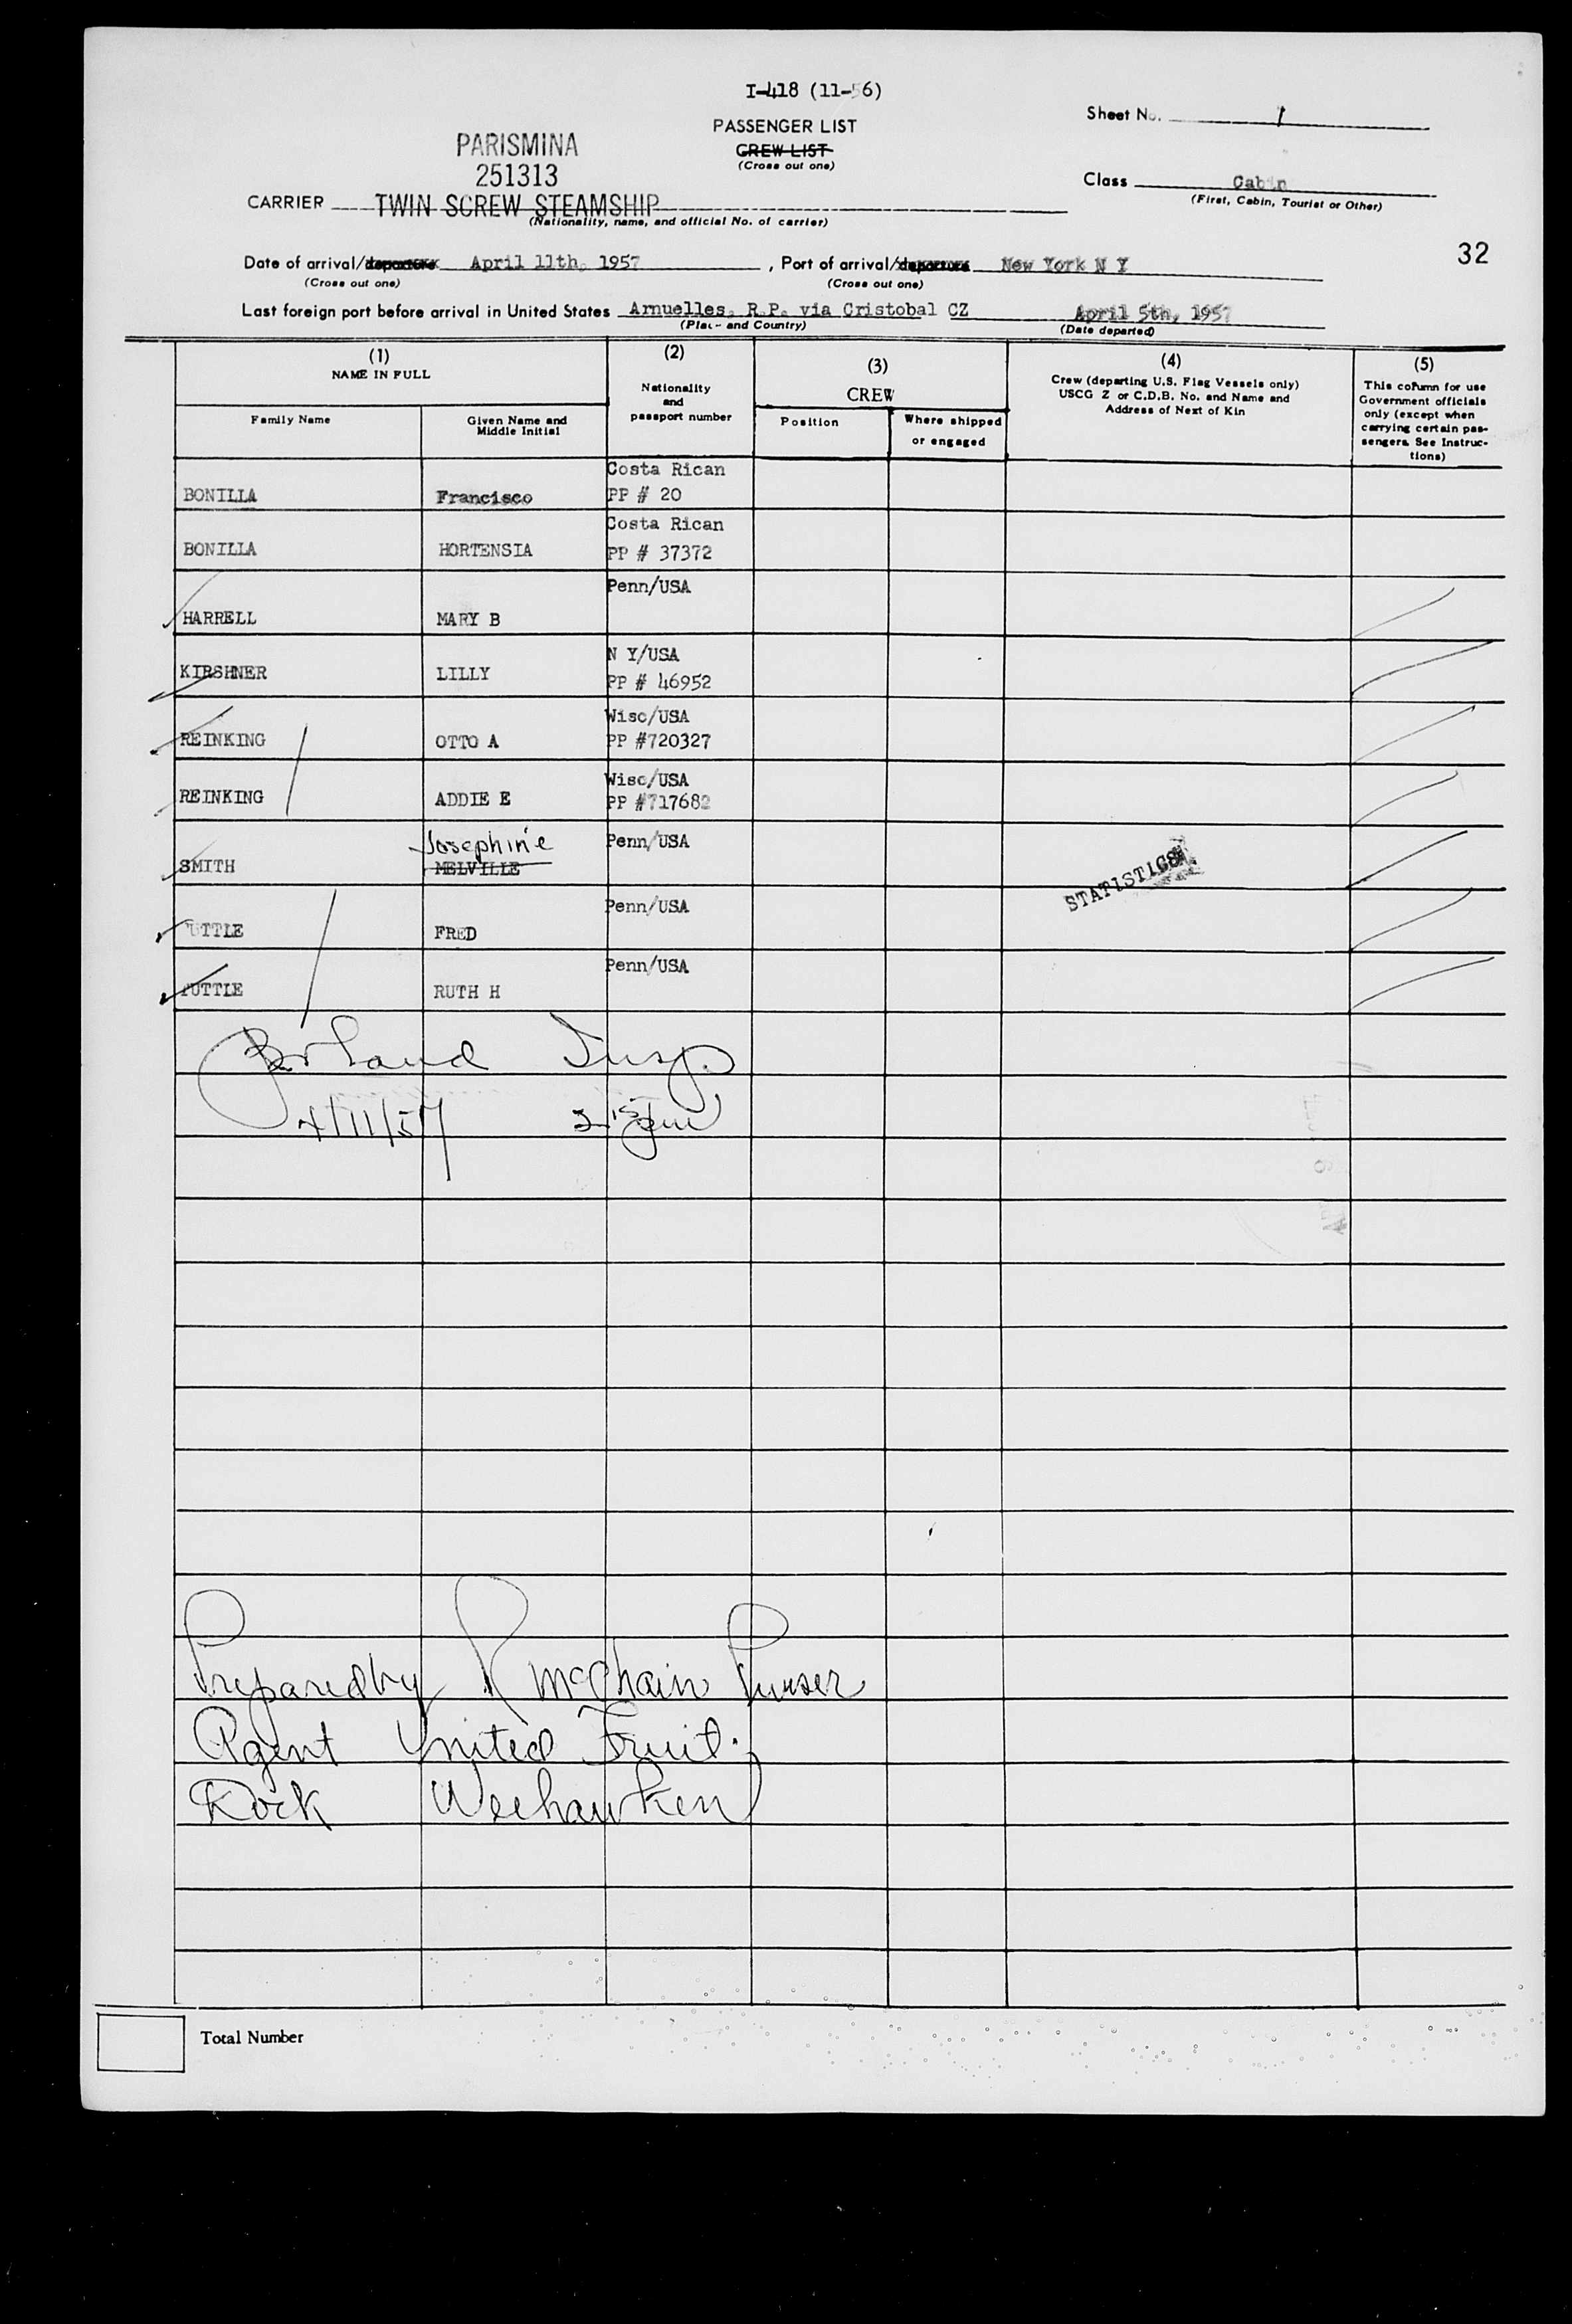 I-418 (11-56)
PASSENGER LIST
CREW LIST
(Cross out one)
Sheet No. 1
PARISMINA
251313
CARRIER TWIN SCREW STEAMSHIP
(Nationality, name, and official No. of carrier)
Class Cabin
(First, Cabin, Tourist or Other)
32
Date of arrival/departure April 11th, 1957, Port of arrival/departure New York N Y
(Cross out one) (Cross out one)
Last foreign port before arrival in United States Armuelles, R.P. via Cristobal CZ April 5th, 1957
(Place and Country) (Date departed)
(1) (2) (3) (4) (5)
NAME IN FULL
Family Name
Given Name and
Middle Initial
Nationality
and
passport number
CREW
Position
Where shipped
or engaged
Crew (departing U.S. Flag Vessels only)
USCG Z or C.D.B. No. and Name and
Address of Next of Kin
This column for use
Government officials
only (except when
carrying certain pas-
sengers. See Instruc-
tions)
Costa Rican
BONILLA Francisco PP # 20
Costa Rican
BONILLA HORTENSIA PP # 37372
Penn/USA
HARRELL MARY B
N Y/USA
KIRSHNER LILLY PP # 46952
Wisc/USA
REINKING OTTO A PP #720327
Wisc/USA
REINKING ADDIE E PP #717682
Josephine Penn/USA
SMITH MELVILLE
STATISTICS
Penn/USA
TUTTLE FRED
Penn/USA
TUTTLE RUTH H
Insp.
4/11/57
Prepared by R McChain Purser
Agent United Fruit.
Dock Weehawken
Total Number